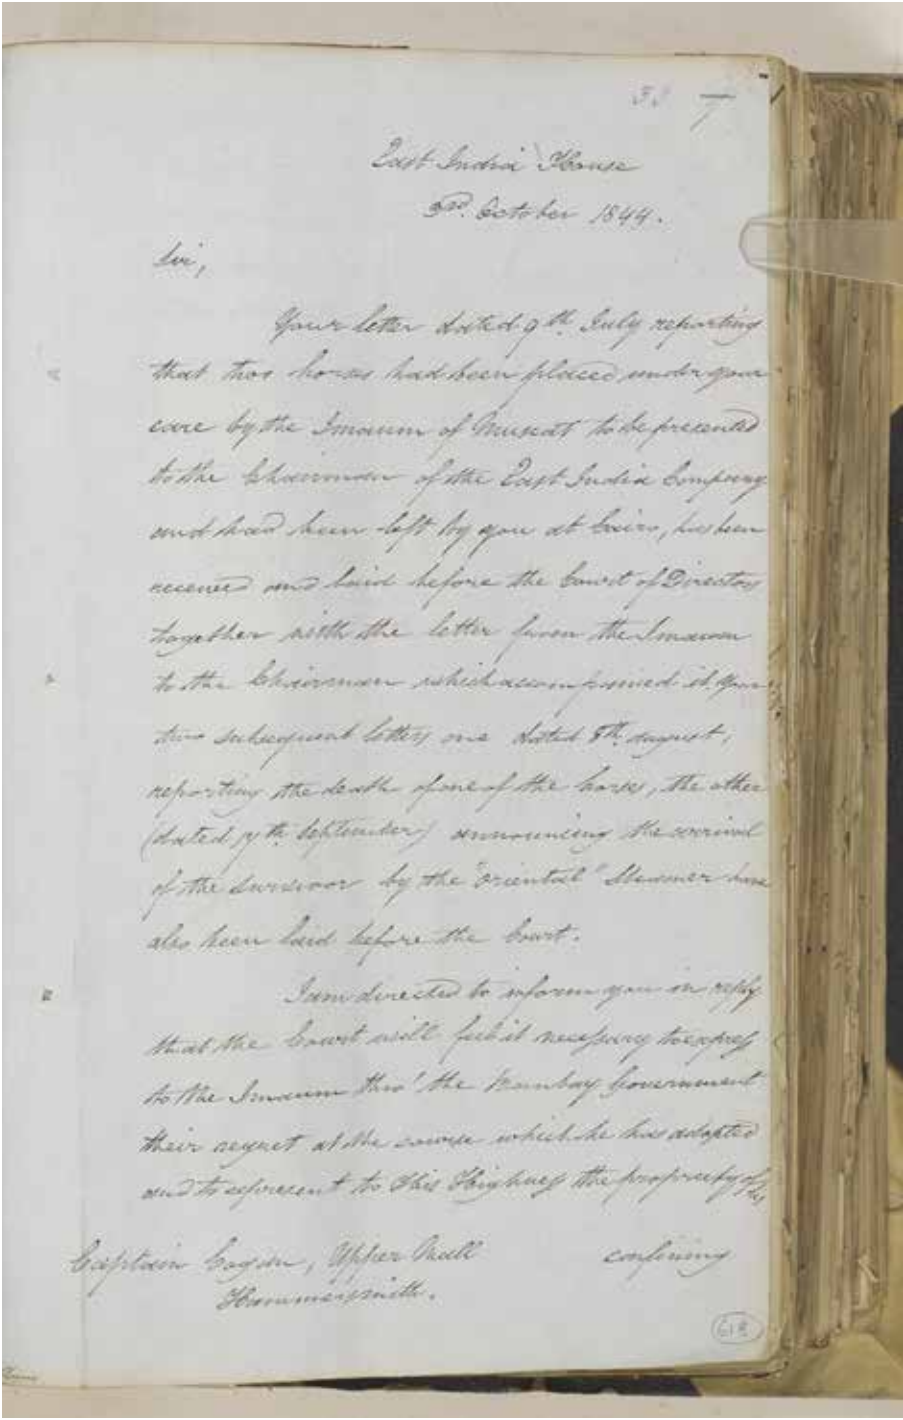 7
East India House
3rd. October 1844.
Sir,
Your letter dated 9th. July reporting
that two horses had been placed under your
care by the Imaum of Muscat to be presented
to the Chairman of the East India Company
and had been left by you at Cairo, has been
received and laid before the Court of Directors
together with the letter from the Imaum
to the Chairman which accompanied it. Your
two subsequent letters one dated 8th. August,
reporting the death of one of the horses, the other
(dated 17th. September) announcing the arrival
of the survivor by the "Oriental" Steamer have
also been laid before the Court.
I am directed to inform you in reply
that the Court will feel it necessary to express
to the Imaum thro' the Bombay Government
their regret at the course which he has adopted
and to represent to His Highness the propriety of his
confining
Captain Cogan, Upper Mall
Hammersmith.
618